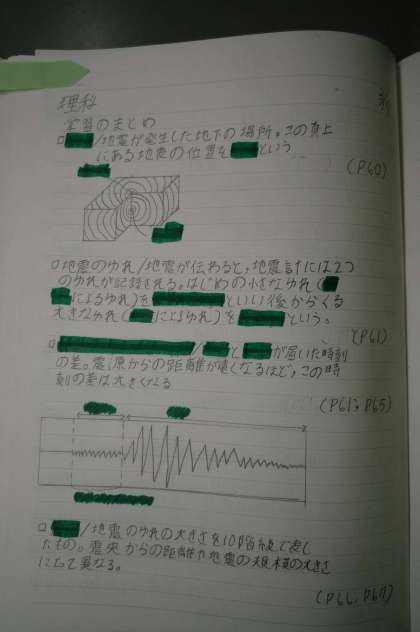 理科
学習のまとめ
□ /地震が発生した地下の場所。この真上
にある地表の位置を という
(P60)
□地震のゆれ/地震が伝わると、地震計には2つ
のゆれが記録される。はじめの小さなゆれ(
によるゆれ)を といい後からくる
大きなゆれ( によるゆれ)を という。
(P61)
□ / と が届いた時刻
の差。震源からの距離が遠くなるほど、この時
刻の差は大きくなる
(P61, P65)
□ /地震のゆれの大きさを10階級で表し
たもの。震央からの距離や地震の規模の大きさ
によって異なる。
(P66, P67)